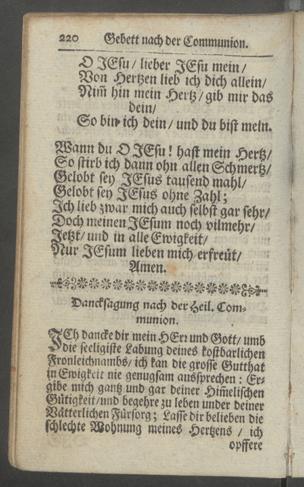 220 Gebett nach der Communion.
O JEsu / lieber JEsu mein /
Von Hertzen lieb ich dich allein /
Nim̃ hin mein Hertz / gib mir das
dein /
So bin ich dein / und du bist mein.
Wann du O JEsu! hast mein Hertz /
So stirb ich dann ohn allen Schmertz /
Gelobt sey JEsus tausend mahl /
Gelobt sey JEsus ohne Zahl;
Ich lieb zwar mich auch selbst gar sehr /
Doch meinen JEsum noch vilmehr /
Jetzt / und in alle Ewigkeit /
Nur JEsum lieben mich erfreüt /
Amen.
Dancksagung nach der Heil. Com-
munion.
JCh dancke dir mein HErr und Gott / umb
die seeligiste Labung deines kostbarlichen
Fronleichnambs / ich kan die grosse Gutthat
in Ewigkeit nie genugsam aussprechen: Er-
gibe mich gantz und gar deiner Him̃elischen
Gütigkeit / und begehre zu leben under deiner
Vätterlichen Fürsorg; Lasse dir belieben die
schlechte Wohnung meines Hertzens / ich
opffere